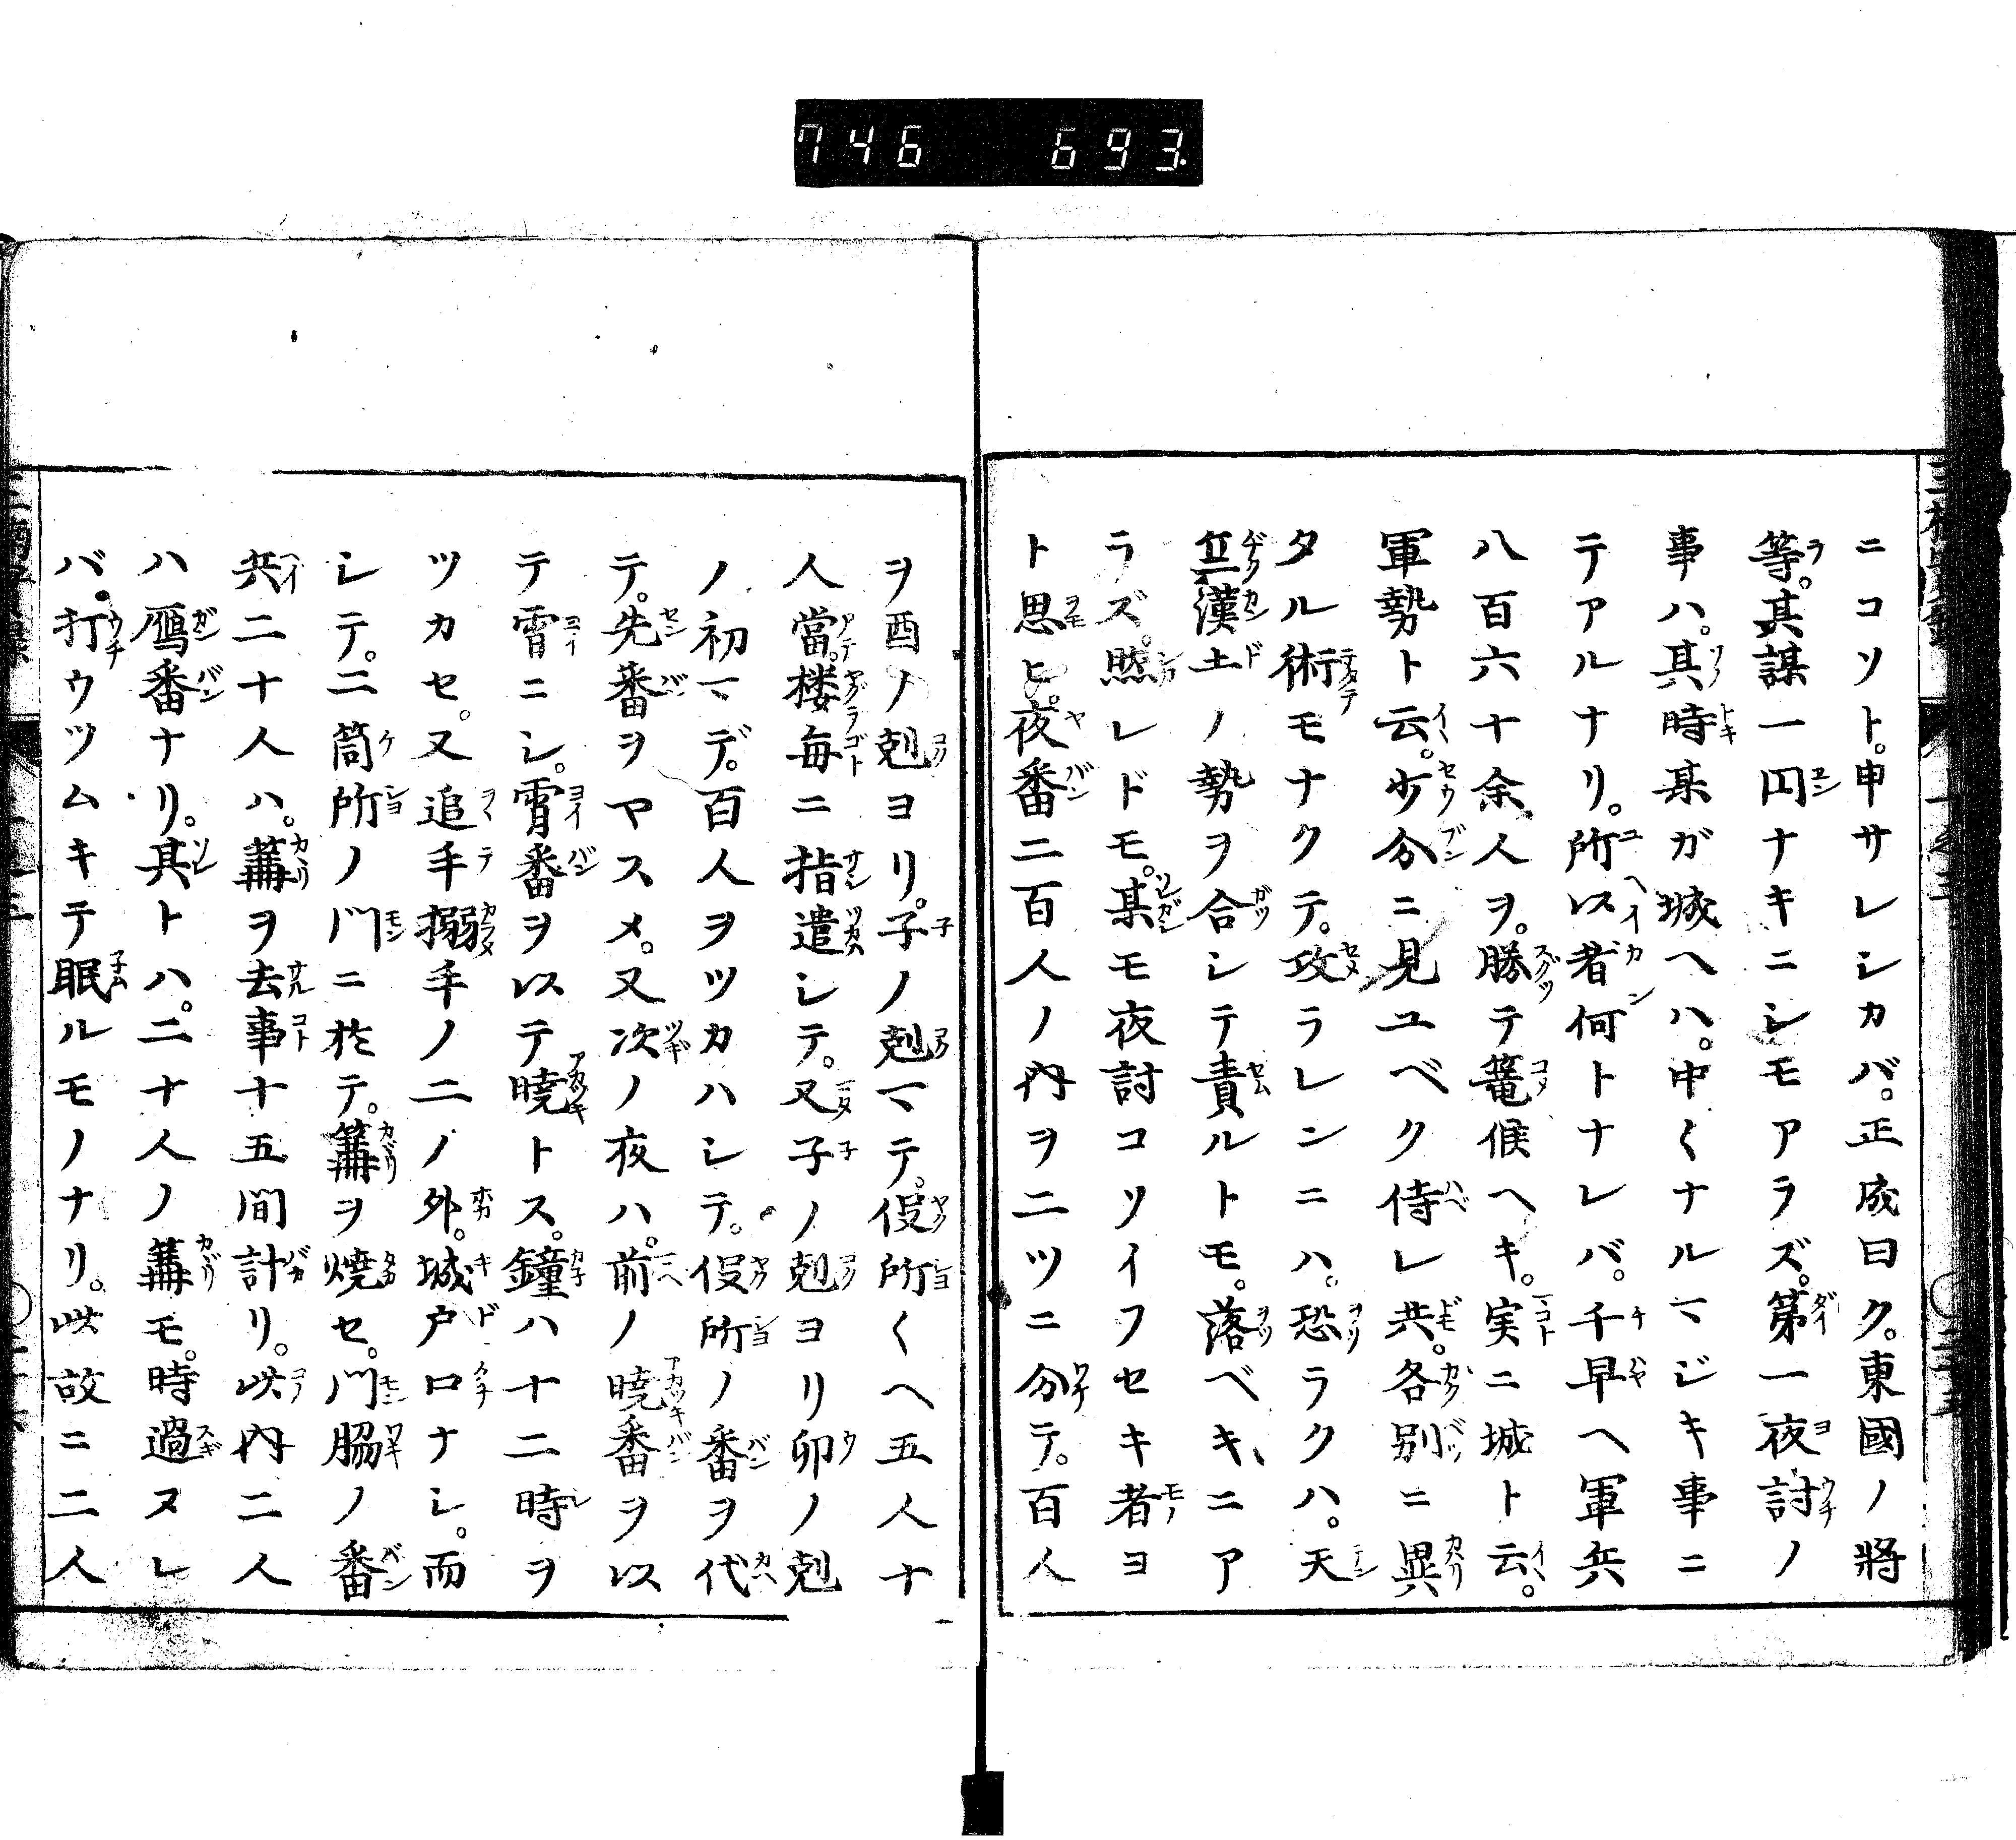 746 693.
ニコソト。申サレシカバ。正成曰ク。東國ノ將
等。其謀一円ナキニシモアラズ。第一夜討ノ
事ハ。其時某ガ城ヘハ。中〱ナルマジキ事ニ
テアルナリ。所以者何トナレバ。千早ヘ軍兵
八百六十余人ヲ。勝テ篭候ヘキ。実ニ城ト云。
軍勢ト云。少分ニ見ユベク侍レ共。各別ニ異
タル術モナクテ。攻ラレンニハ。恐ラクハ。天
竺漢土ノ勢ヲ合シテ責ルトモ。落ベキニア
ラズ。然レドモ。某モ夜討コソイフセキ者ヨ
ト思ヒ。夜番二百人ノ内ヲ二ツニ分テ。百人
ヲ酉ノ剋ヨリ。子ノ剋マテ。役所〱ヘ五人十
人當。楼毎ニ指遣シテ。又子ノ剋ヨリ卯ノ剋
ノ初マデ。百人ヲツカハシテ。役所ノ番ヲ代
テ。先番ヲヤスメ。又次ノ夜ハ。前ノ暁番ヲ以
テ宵ニシ。宵番ヲ以テ暁トス。鐘ハ十二時ヲ
ツカセ。又追手搦手ノ二ノ外。城戸口ナシ。而
シテ。二箇所ノ門ニ於テ。篝ヲ焼セ。門脇ノ番
兵二十人ハ。篝ヲ去事十五間計リ。此内二人
ハ鴈番ナリ。其トハ。二十人ノ篝モ。時過ヌレ
バ。打ウツムキテ眠ルモノナリ。此故ニ二人